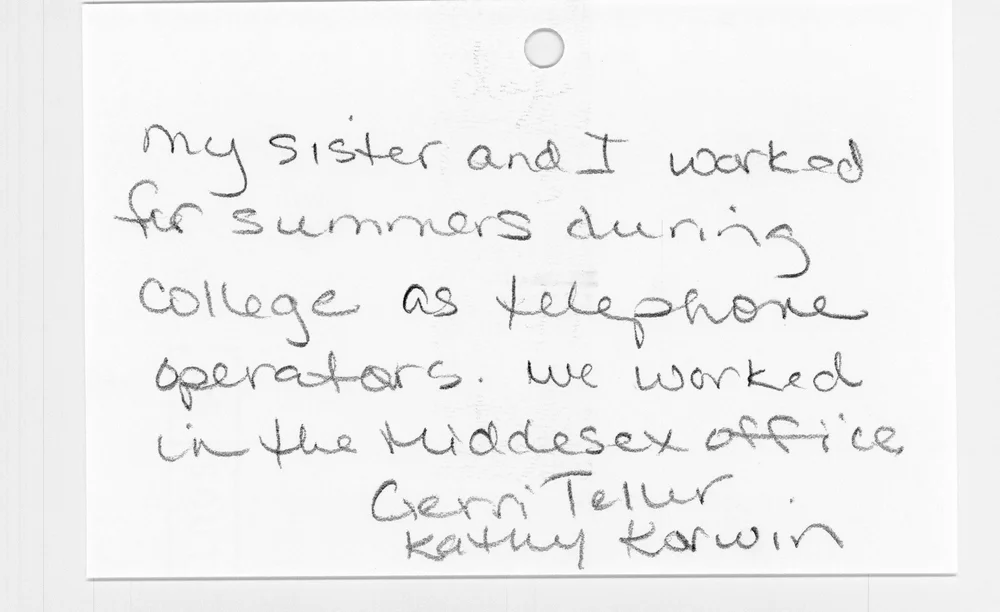 My sister and I worked
for summers during
college as telephone
operators. We worked
in the Middesex office
Gerri Teller
Kathy Korwin